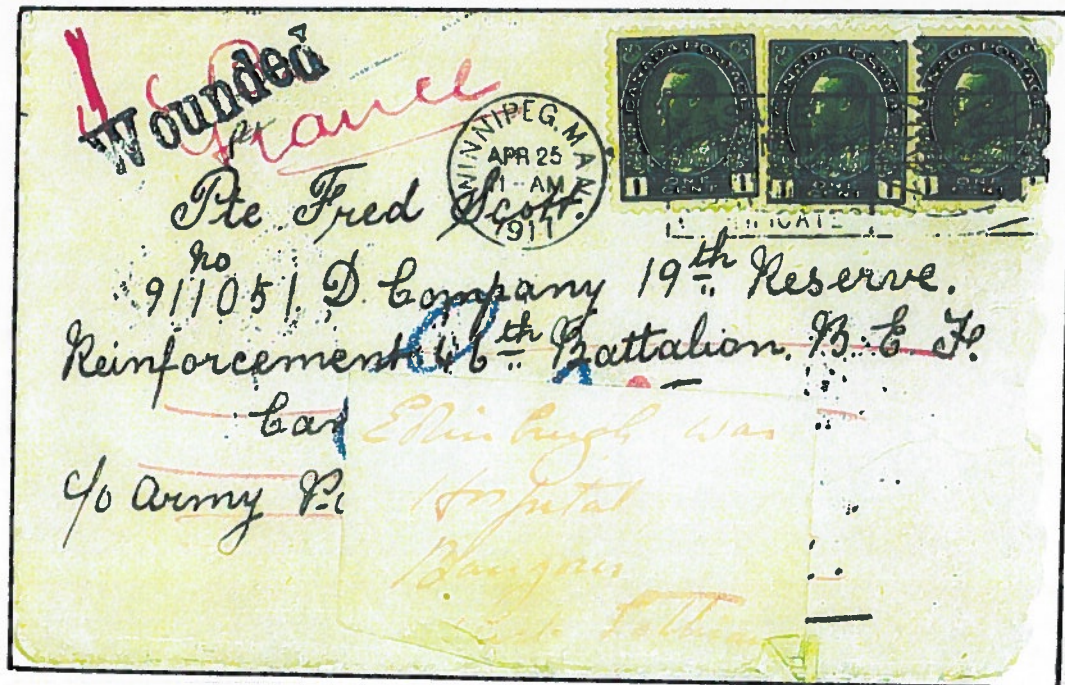 Wounded
France
WINNIPEG. MAN.
APR 25
AM
1917
CANADA POSTAGE
CANADA POSTAGE
CANADA POSTAGE
1 ONE CENT 1
1 CENT 1
1
Pte Fred Scott.
no
911051. D. Company 19th Reserve.
Reinforcement 46th Battalion. B. E. F.
Can
c/o Army
Edinburgh War
Hospital
Bangour